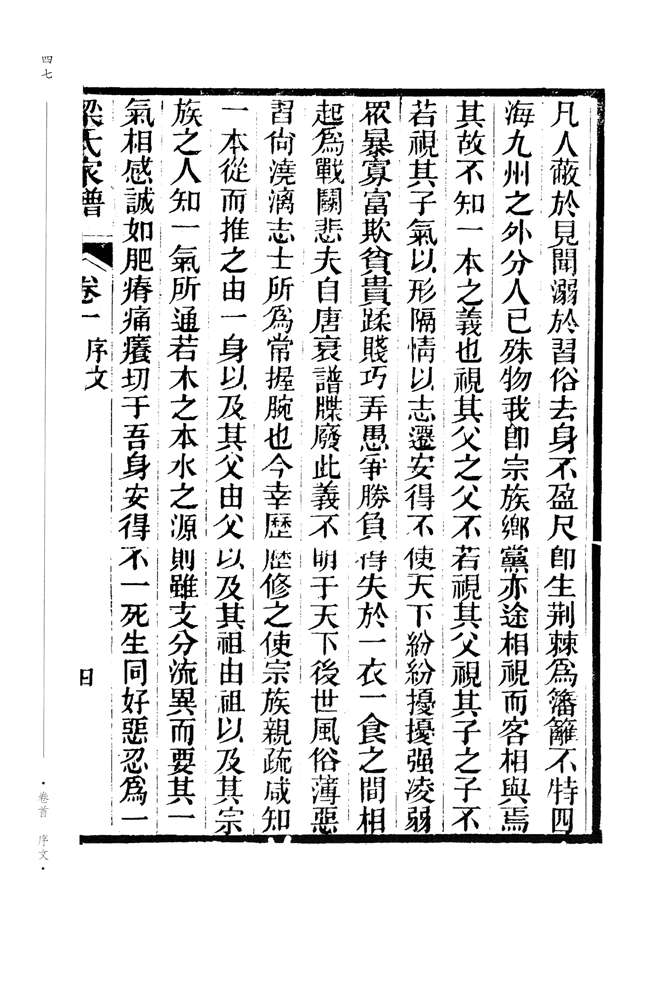 凡人蔽於見聞溺於習俗去身不盈尺卽生荆棘爲籓籬不特四
海九州之外分人己殊物我卽宗族鄉黨亦途相視而客相與焉
其故不知一本之義也視其父之父不若視其父視其子之子不
若視其子氣以形隔情以志遷安得不使天下紛紛擾擾强凌弱
眾暴寡富欺貧貴蹂賤巧弄愚爭勝負得失於一衣一食之間相
起爲戰鬬悲夫自唐衰譜牒廢此義不明于天下後世風俗薄惡
習尙澆漓志士所爲常握腕也今幸歷歷修之使宗族親疏咸知
一本從而推之由一身以及其父由父以及其祖由祖以及其宗
族之人知一氣所通若木之本水之源則雖支分流異而要其一
氣相感誠如肥瘠痛癢切于吾身安得不一死生同好惡忍爲一
梁氏家譜 卷一 序文 四
四七
·卷首 序文·